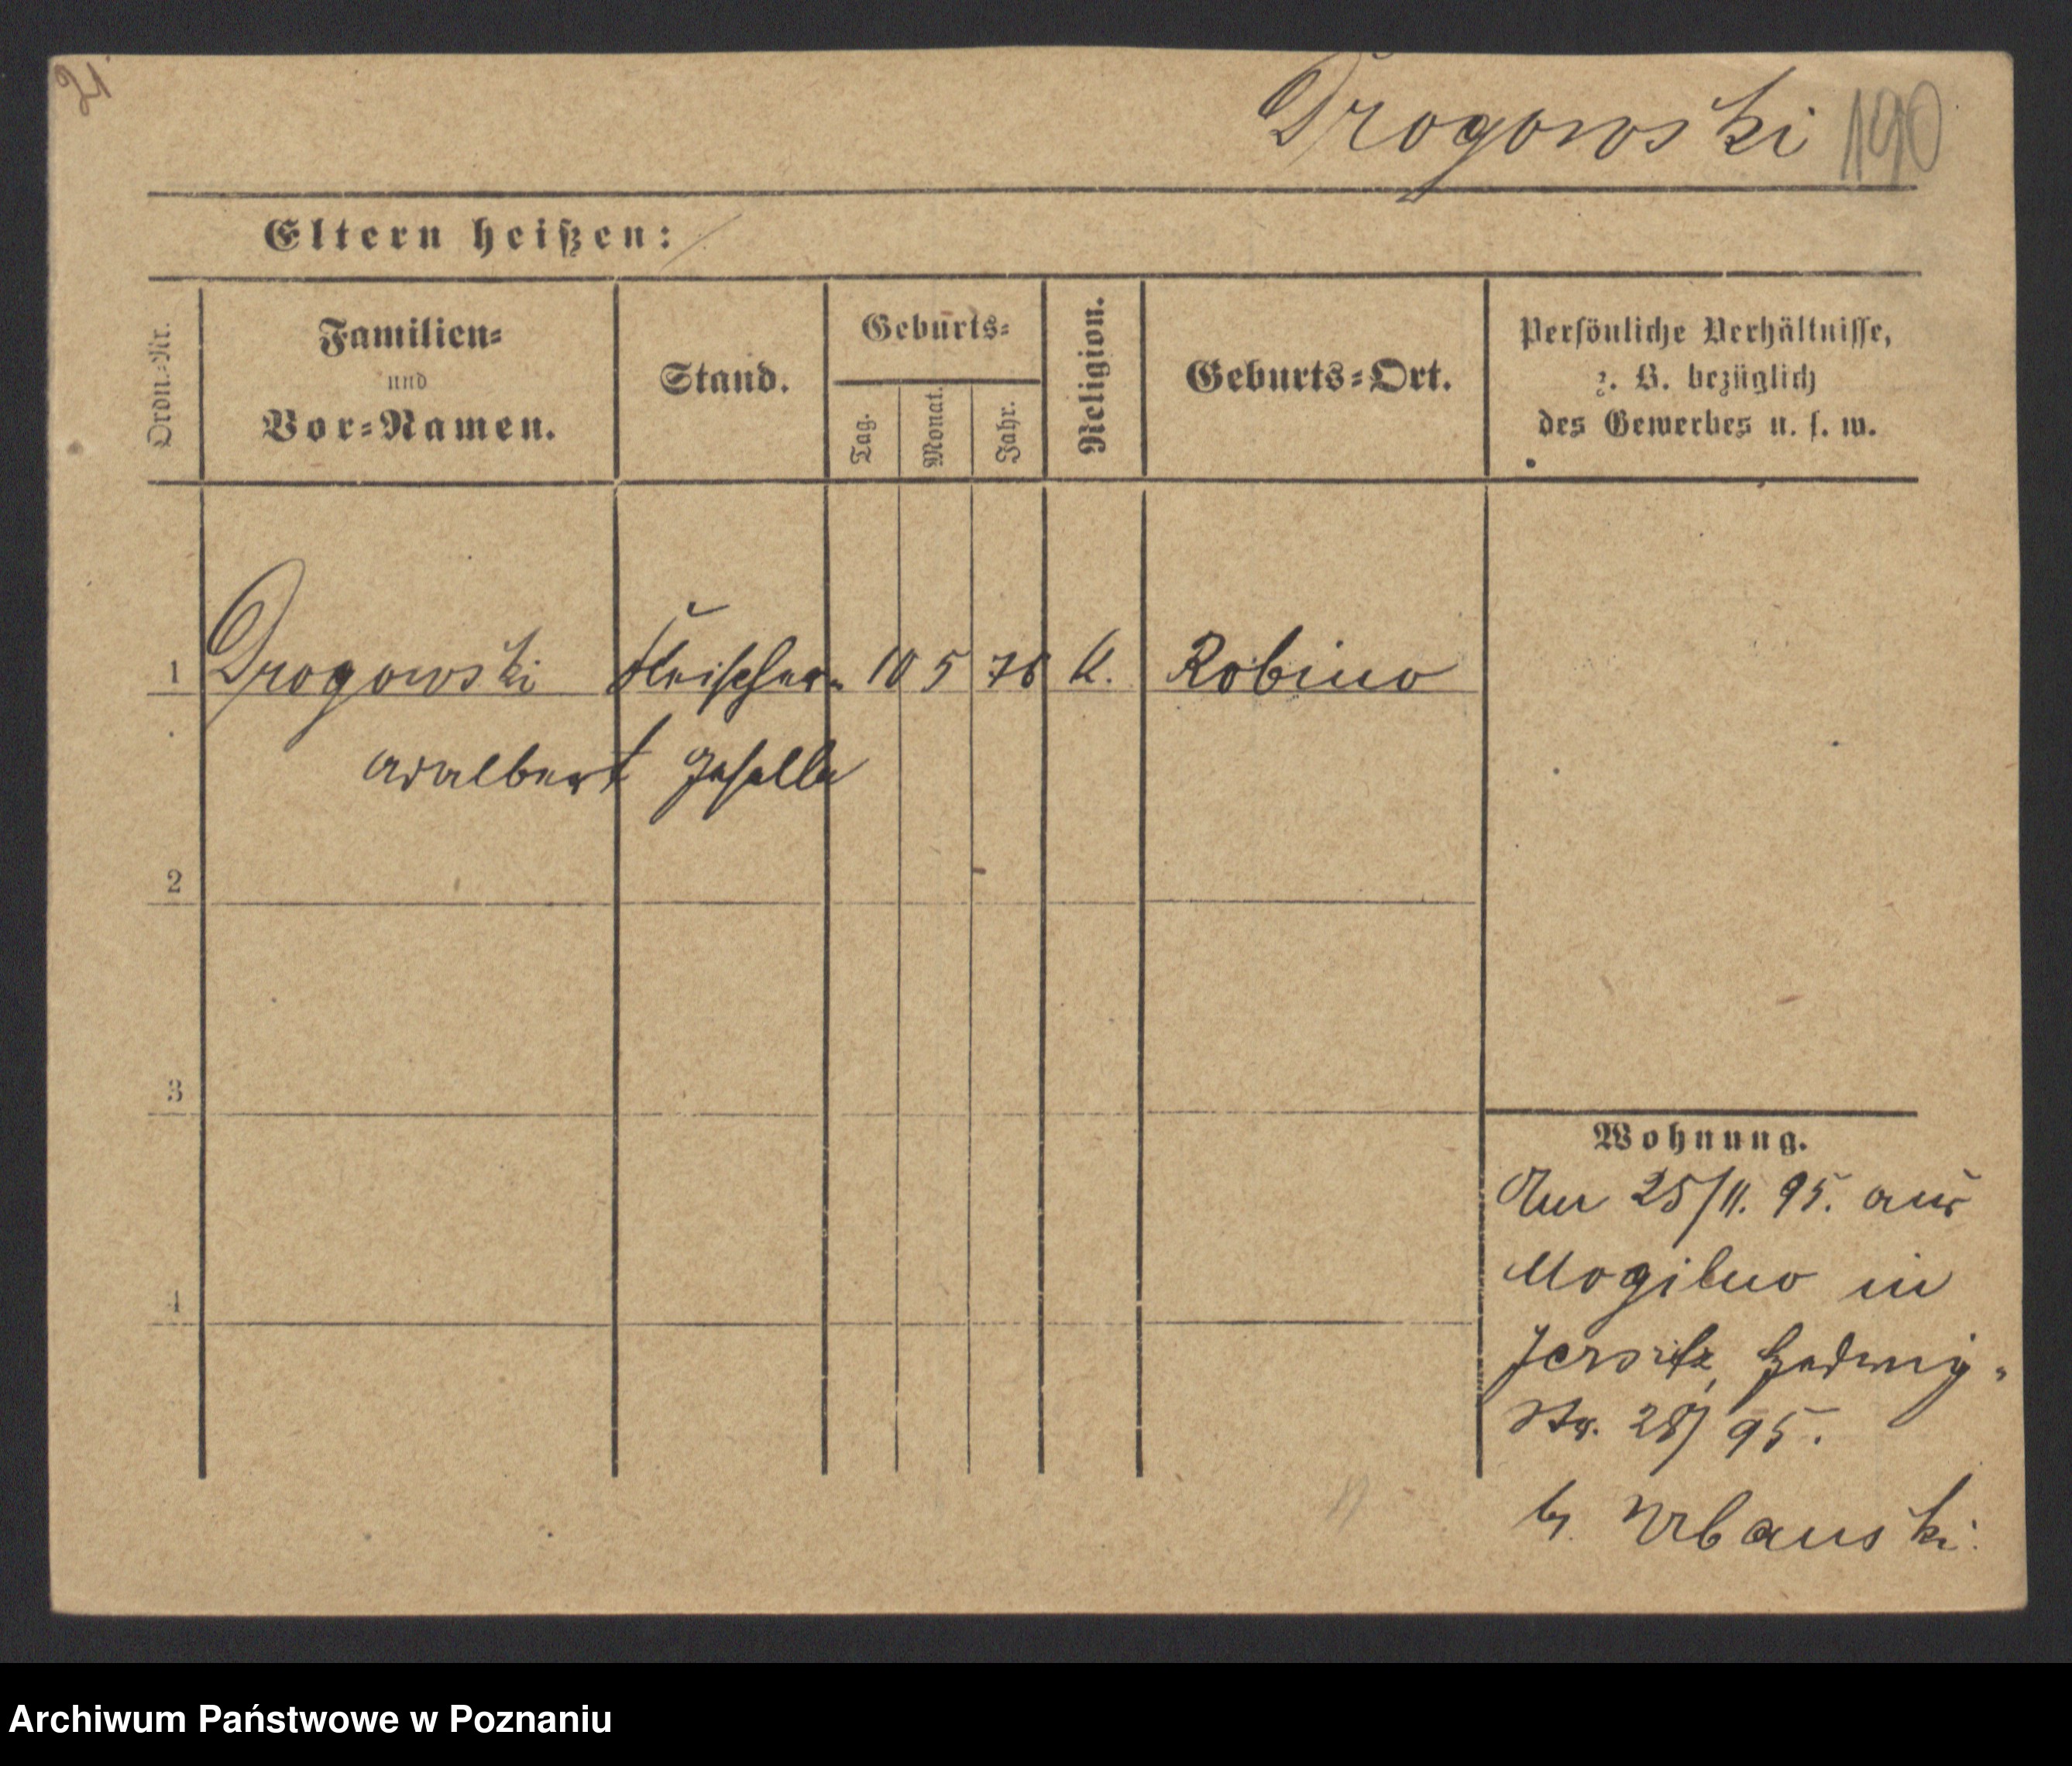 21
Drogowski 190
Eltern heißen:
Ordn.-Nr.
Familien-
und
Vor-Namen.
Stand.
Geburts-
Tag.
Monat.
Jahr.
Religion.
Geburts-Ort.
Persönliche Verhältnisse,
z. B. bezüglich
des Gewerbes u. s. w.
1 Drogowski Fleischer- 10 5 76 K. Robino
Adalbert geselle
2
3
4
Wohnung.
Am 25/11. 95. aus
Mogilno in
Jersitz, Hedwig-
Str. 28/95.
b. Urbanski.
Archiwum Państwowe w Poznaniu